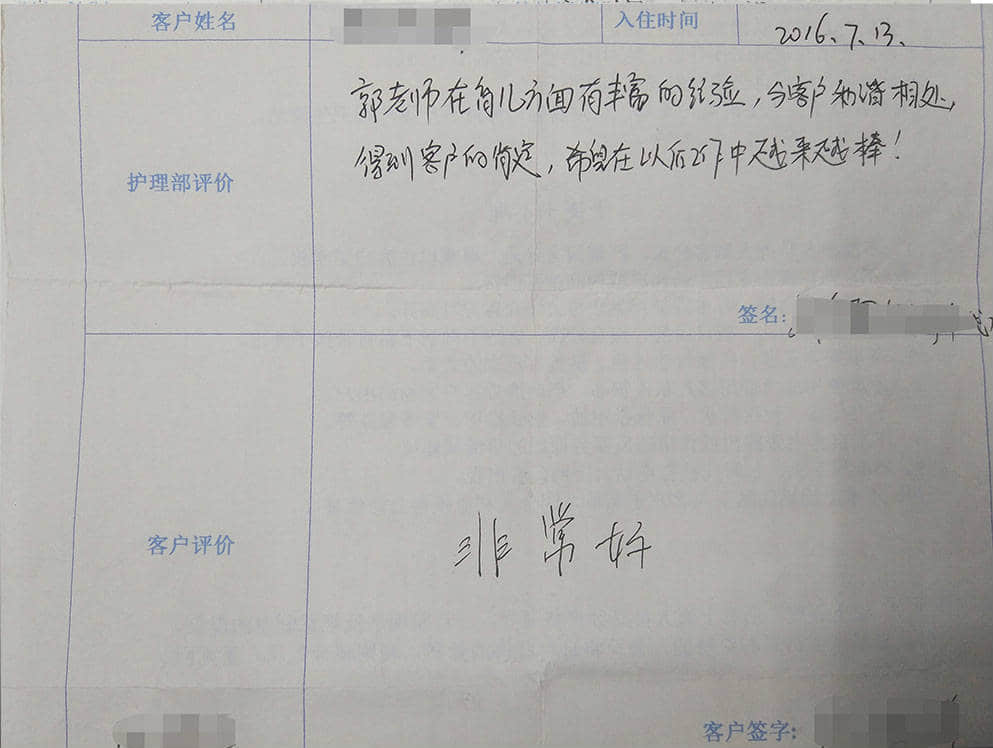 客户姓名 入住时间 2016.7.13.
护理部评价
郭老师在育儿方面有丰富的经验，与客户和谐相处，
得到客户的肯定，希望在以后工作中越来越棒！
签名:
客户评价
非常好
客户签字: